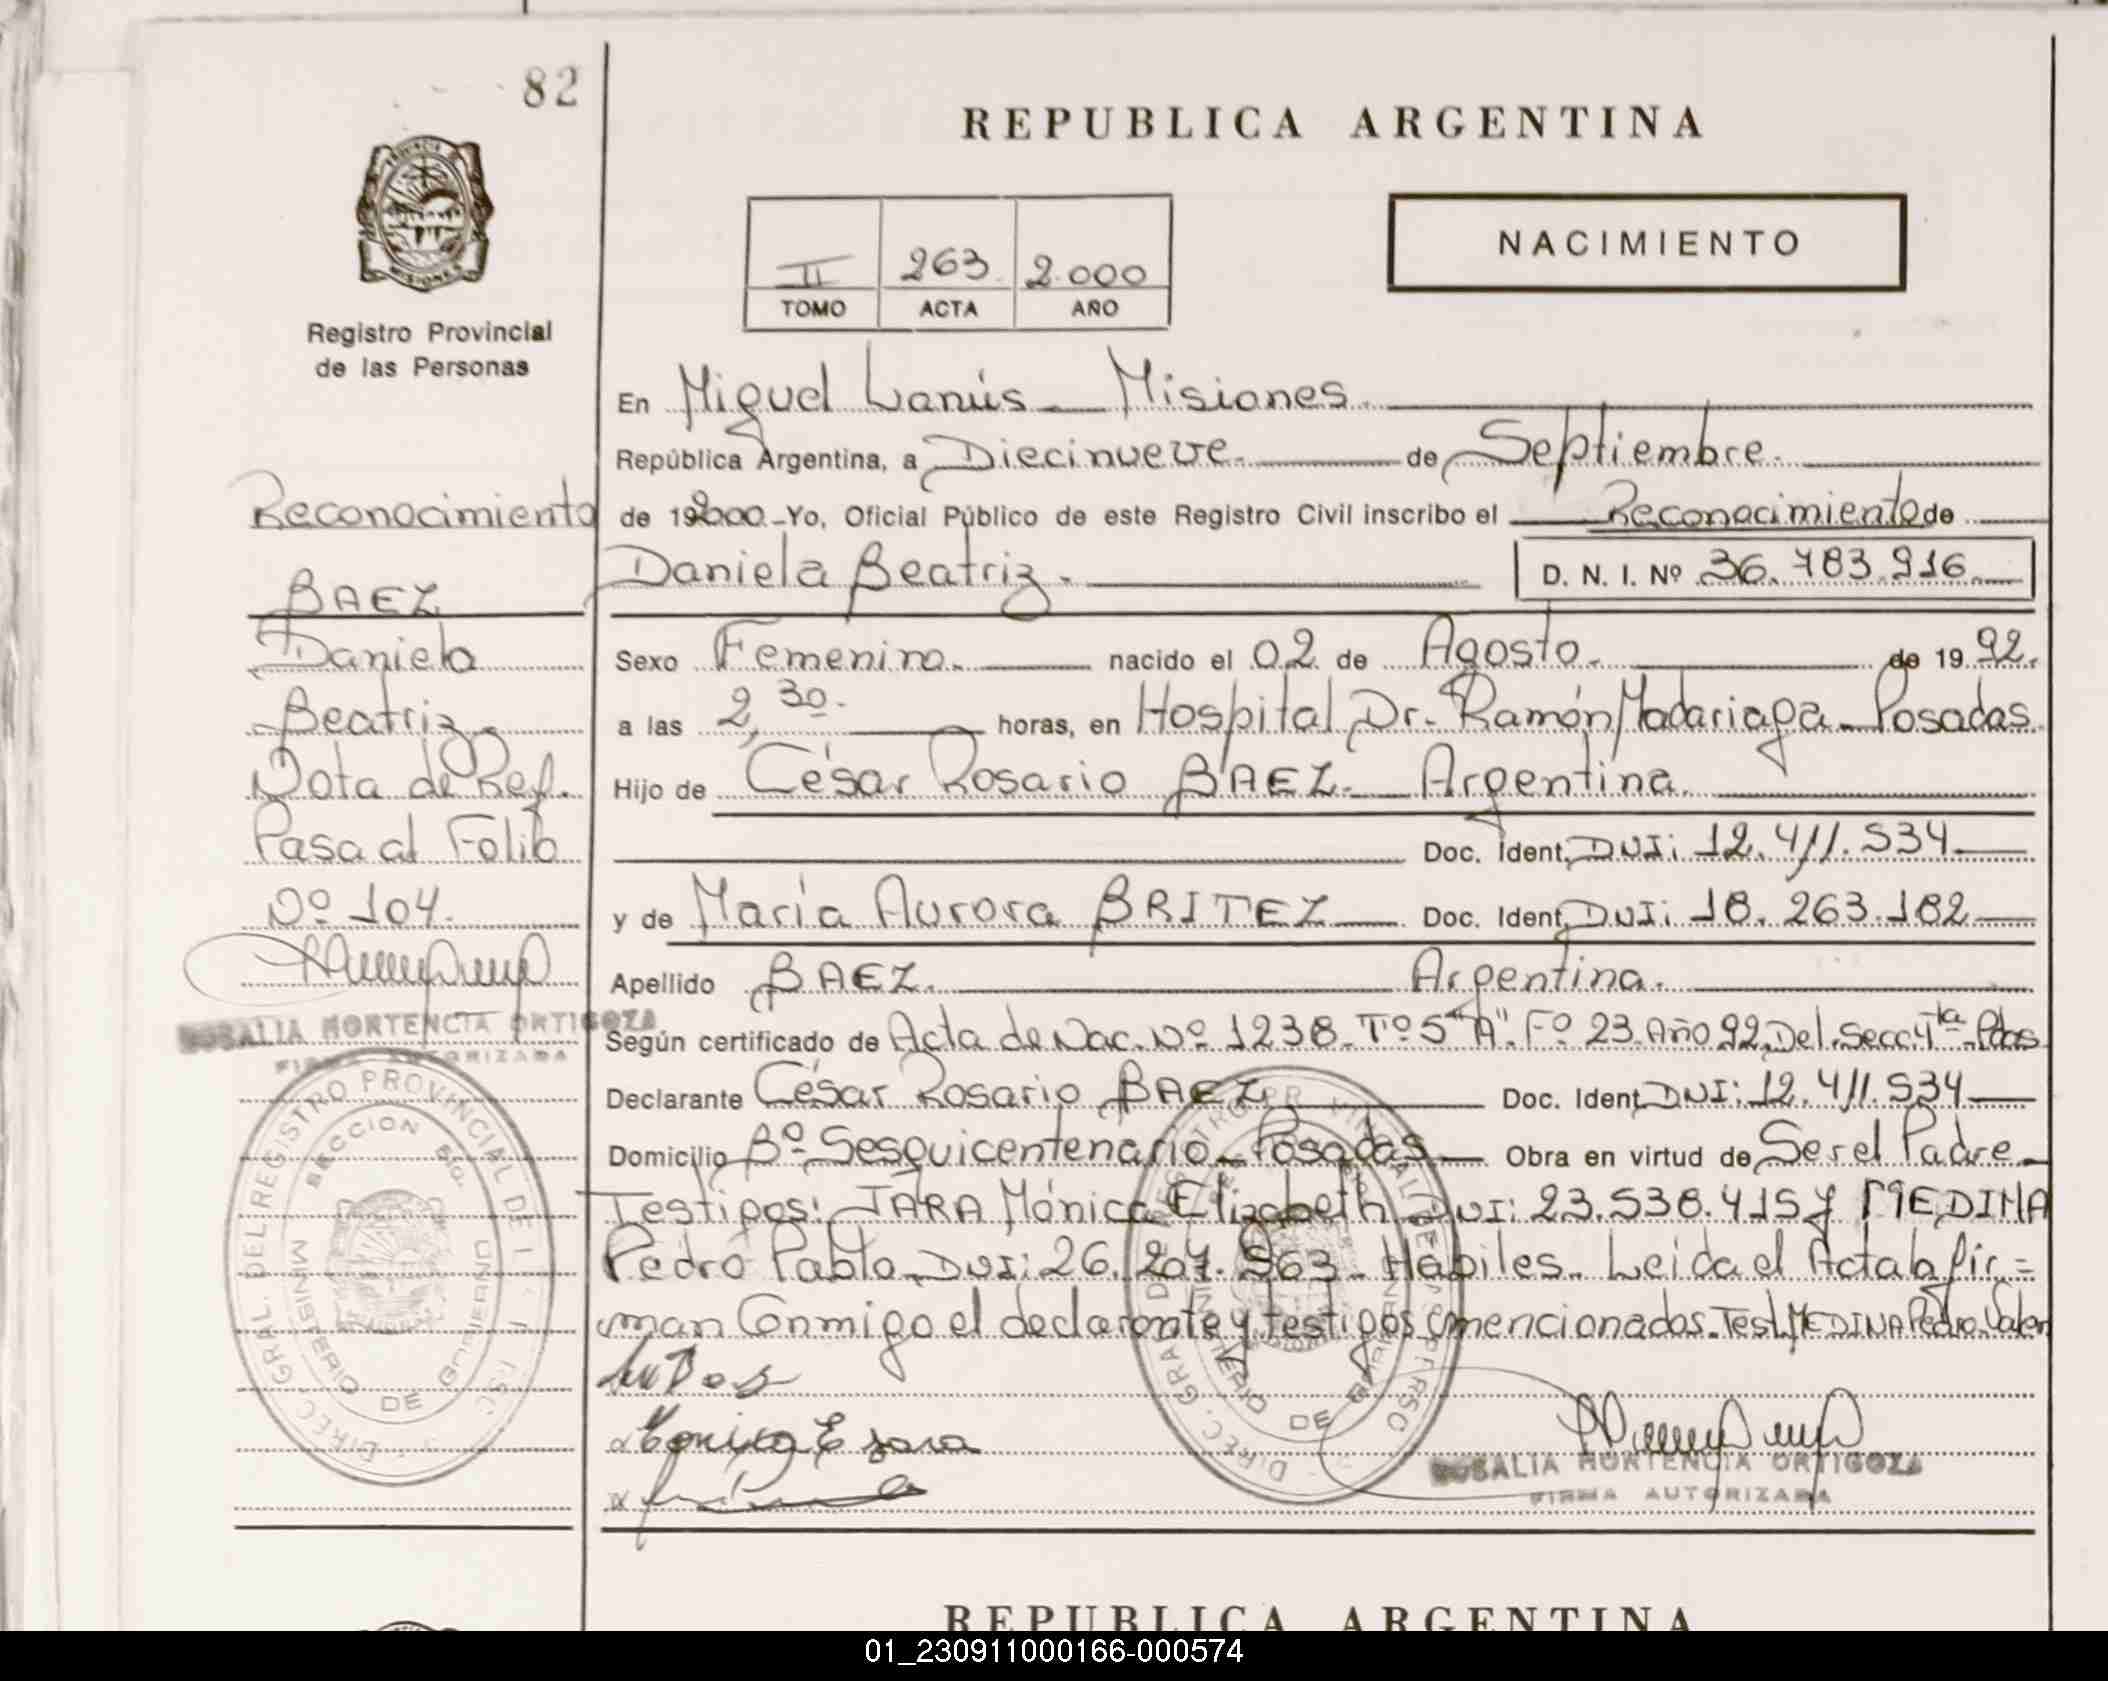 82
REPUBLICA ARGENTINA
PROVINCIA
MISIONES
Registro Provincial
de las Personas
II 263 2.000
TOMO ACTA AÑO
NACIMIENTO
En Miguel Lanús - Misiones.
República Argentina, a Diecinueve. de Septiembre.
Reconocimiento
de 192000.- Yo, Oficial Público de este Registro Civil inscribo el Reconocimiento de
Daniela Beatriz. D. N. I. Nº 36.783.916
BAEZ
Daniela
Sexo Femenino. nacido el 02 de Agosto. de 1992.
Beatriz.
a las 2,30. horas, en Hospital Dr. Ramón Madariaga - Posadas.
Nota de Ref.
Hijo de César Rosario BAEZ. Argentina.
Pasa al Folio
Doc. Ident. DNI: 12.411.534
Nº 104.
y de María Aurora BRITEZ Doc. Ident. DNI: 18.263.182
Apellido BAEZ. Argentina.
ROSALIA HORTENCIA ORTIGOZA
FIRMA AUTORIZADA
Según certificado de Acta de Nac. Nº 1238 - Tº 5 "A". Fº 23. Año 92. Del. Secc. 4ta Pdas
Declarante César Rosario BAEZ Doc. Ident. DNI: 12.411.534
Domicilio Bº Sesquicentenario - Posadas Obra en virtud de Ser el Padre
Testigos: JARA Mónica Elizabeth DNI: 23.538.415 y MEDINA
Pedro Pablo. DNI: 26.207.963 - Hábiles - Leida el Acta la fir=
man Conmigo el declarante y testigos mencionados. Test. MEDINA Pedro. Valen
DIREC. GRAL. DEL REGISTRO PROVINCIAL DE
SECCION
MINISTERIO DE GOBIERNO
Monica E Jara
ROSALIA HORTENCIA ORTIGOZA
FIRMA AUTORIZADA
REPUBLICA ARGENTINA
01_230911000166-000574